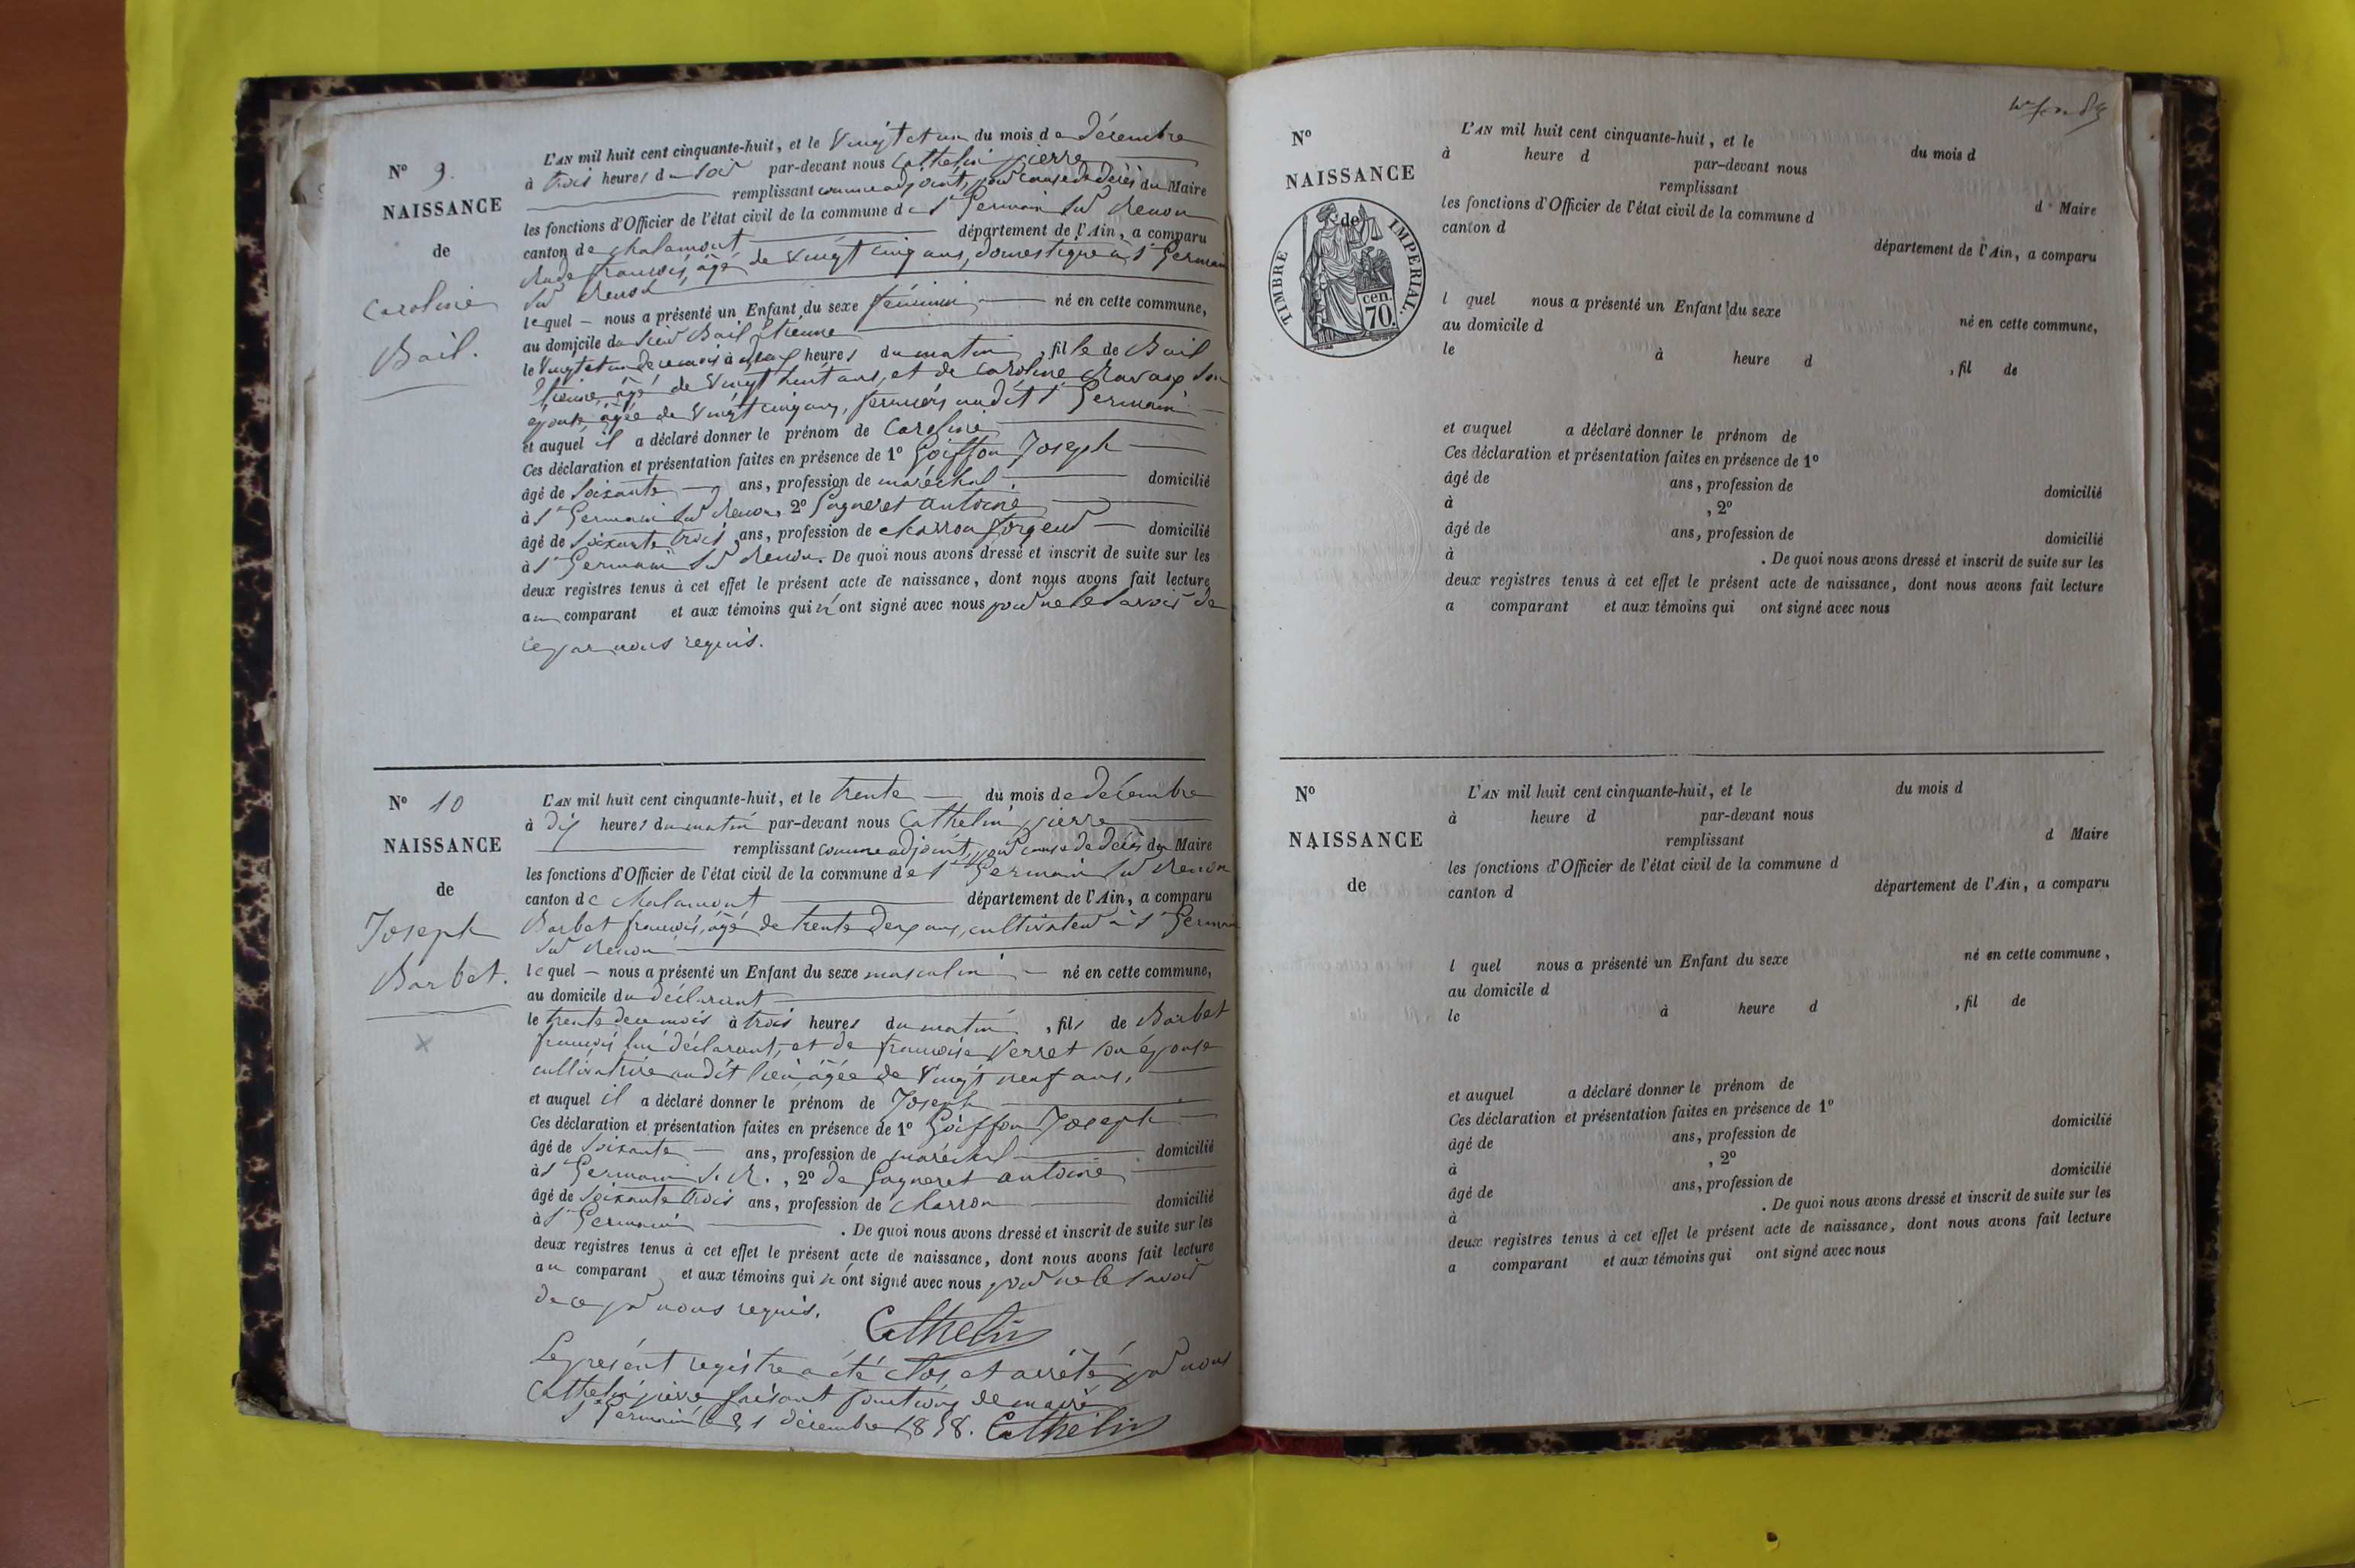 N° 9.
NAISSANCE
de
Caroline
Bail.
L'AN mil huit cent cinquante-huit, et le Vingt et un du mois de Décembre
à trois heures du soir par-devant nous Cathelin pierre
remplissant comme adjoint, pour cause de décès du Maire
les fonctions d'Officier de l'état civil de la commune de St Germain sur Renon
canton de chalamont département de l'Ain, a comparu
françois, âgé de vingt cinq ans, domestique à St Germain
sur Renon
lequel nous a présenté un Enfant du sexe féminin, né en cette commune,
au domicile du sieur Bail Etienne
le Vingt et un de ce mois à heures du matin, fille de Bail
Etienne, âgé de vingt huit ans, et de Caroline son
épouse, âgée de vingt cinq ans, fermiers audit St Germain
et auquel il a déclaré donner le prénom de Caroline
Ces déclaration et présentation faites en présence de 1° Goiffon Joseph
âgé de soixante ans, profession de maréchal, domicilié
à St Germain sur Renon, 2° Gagneret antoine
âgé de soixante trois ans, profession de charron forgeur domicilié
à St Germain sur Renon. De quoi nous avons dressé et inscrit de suite sur les
deux registres tenus à cet effet le présent acte de naissance, dont nous avons fait lecture
au comparant et aux témoins qui n'ont signé avec nous pour ne le savoir de
ce par nous requis.
N° 10
NAISSANCE
de
Joseph
Barbet.
L'AN mil huit cent cinquante-huit, et le trente du mois de décembre
à dix heures du matin par-devant nous Cathelin pierre
remplissant comme adjoint, pour cause de décès du Maire
les fonctions d'Officier de l'état civil de la commune de St Germain sur Renon
canton de chalamont département de l'Ain, a comparu
Barbet françois, âgé de trente deux ans, cultivateur à St Germain
sur Renon
lequel nous a présenté un Enfant du sexe masculin, né en cette commune,
au domicile du déclarant
le trente de ce mois à trois heures du matin, fils de Barbet
françois lui déclarant, et de françoise Verret son épouse
cultivatrice audit lieu, âgée de Vingt neuf ans,
et auquel il a déclaré donner le prénom de Joseph
Ces déclaration et présentation faites en présence de 1° Goiffon Joseph
âgé de soixante ans, profession de maréchal domicilié
à St Germain S. R., 2° de Gagneret antoine
âgé de soixante trois ans, profession de charron domicilié
à St Germain. De quoi nous avons dressé et inscrit de suite sur les
deux registres tenus à cet effet le présent acte de naissance, dont nous avons fait lecture
au comparant et aux témoins qui n'ont signé avec nous pour ne le savoir
de ce par nous requis.
Cathelin
Le présent registre a été clos et arrêté par nous
Cathelin pierre faisant fonctions de maire
St Germain le 31 décembre 1858. Cathelin
N°
NAISSANCE
de
TIMBRE IMPERIAL.
cen.
70.
L'AN mil huit cent cinquante-huit, et le du mois d
à heure d par-devant nous
remplissant d Maire
les fonctions d'Officier de l'état civil de la commune d
canton d département de l'Ain, a comparu
l quel nous a présenté un Enfant du sexe né en cette commune,
au domicile d
le à heure d , fil de
et auquel a déclaré donner le prénom de
Ces déclaration et présentation faites en présence de 1°
âgé de ans, profession de domicilié
à , 2°
âgé de ans, profession de domicilié
à . De quoi nous avons dressé et inscrit de suite sur les
deux registres tenus à cet effet le présent acte de naissance, dont nous avons fait lecture
a comparant et aux témoins qui ont signé avec nous
N°
NAISSANCE
de
L'AN mil huit cent cinquante-huit, et le du mois d
à heure d par-devant nous
remplissant d Maire
les fonctions d'Officier de l'état civil de la commune d
canton d département de l'Ain, a comparu
l quel nous a présenté un Enfant du sexe né en cette commune,
au domicile d
le à heure d , fil de
et auquel a déclaré donner le prénom de
Ces déclaration et présentation faites en présence de 1°
âgé de ans, profession de domicilié
à , 2°
âgé de ans, profession de domicilié
à . De quoi nous avons dressé et inscrit de suite sur les
deux registres tenus à cet effet le présent acte de naissance, dont nous avons fait lecture
a comparant et aux témoins qui ont signé avec nous